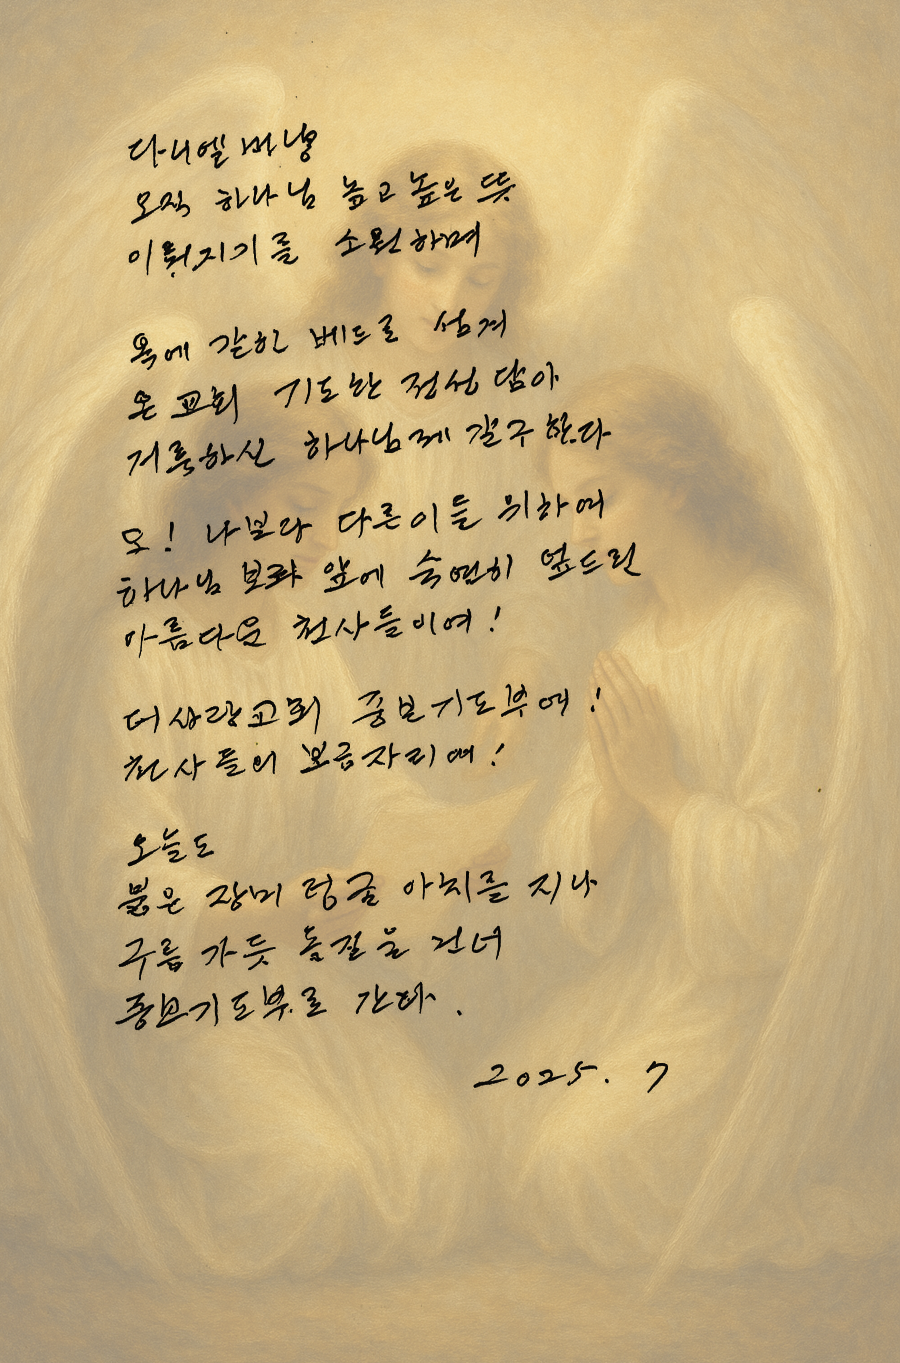 다니엘 마냥
오직 하나님 높고 높은 뜻
이뤄지기를 소원하며
옥에 갇힌 베드로 섬겨
온 교회 기도한 정성 담아
거룩하신 하나님께 갈구한다
오! 나보다 다른이들 위하여
하나님 보좌 앞에 숙연히 엎드린
아름다운 천사들이여!
더사랑교회 중보기도부여!
천사들의 보금자리여!
오늘도
붉은 장미 덩굴 아치를 지나
구름 가듯 돌길을 건너
중보기도부로 간다.
2025. 7